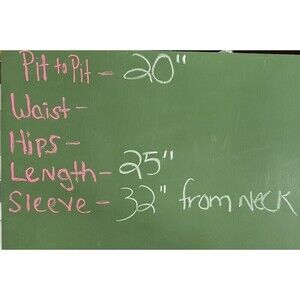 Pit to Pit - 20"
Waist -
Hips -
Length - 25"
Sleeve - 32" from NECK